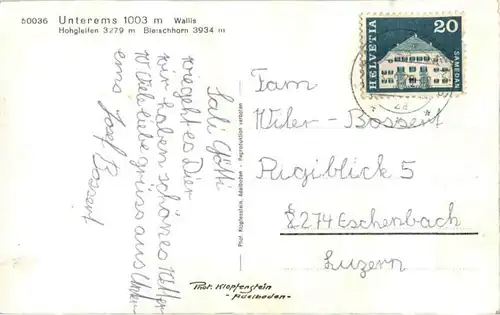 50036 Unterems 1003 m Wallis
Hohgleifen 3279 m Bietschhorn 3934 m
Sali Götti
wiegeht es Dier
wir haben schönes Wetter
Viele liebe grüss aus Unter
ems Josef Bossert
Phot. Klopfenstein, Adelboden - Reproduktion verboten
HELVETIA
20
SAMEDAN
Fam
Wiler-Bossert
Rigiblick 5
6274 Eschenbach
Luzern
Phot. Klopfenstein
-Adelboden-